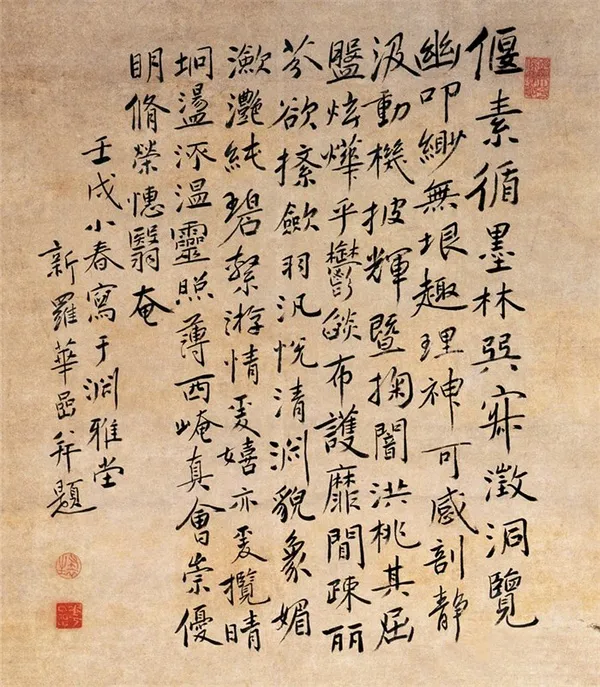 偃素循墨林巽㝛澂洞覽
幽叩緲無垠趣理神可感剖靜
汲動機披輝暨掬闇洪桃其屈
盤炫燁乎鬱燄布護靡閒疎丽
芬欲揉歛羽汎悅清渊貌象媚
瀲灧純碧絜游情爰嬉亦爰攬晴
坰盪深溫靈照薄西崦真會崇優
明脩榮憓翳奄
壬戌小春寫于渊雅堂
新羅華喦并題